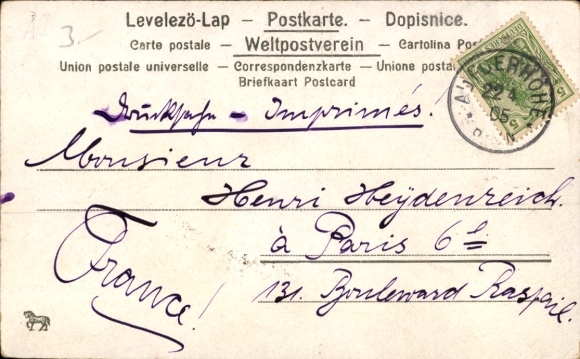 Levelezö-Lap — Postkarte. — Dopisnice.
Carte postale — Weltpostverein — Cartolina Pos
Union postale universelle — Correspondenzkarte — Unione postal
Briefkaart Postcard
3.-
Drucksache - Imprimés!
Monsieur
Henri Heÿdenreich.
à Paris 6e
131. Bouleward Raspail.
France!
22.4
05
5